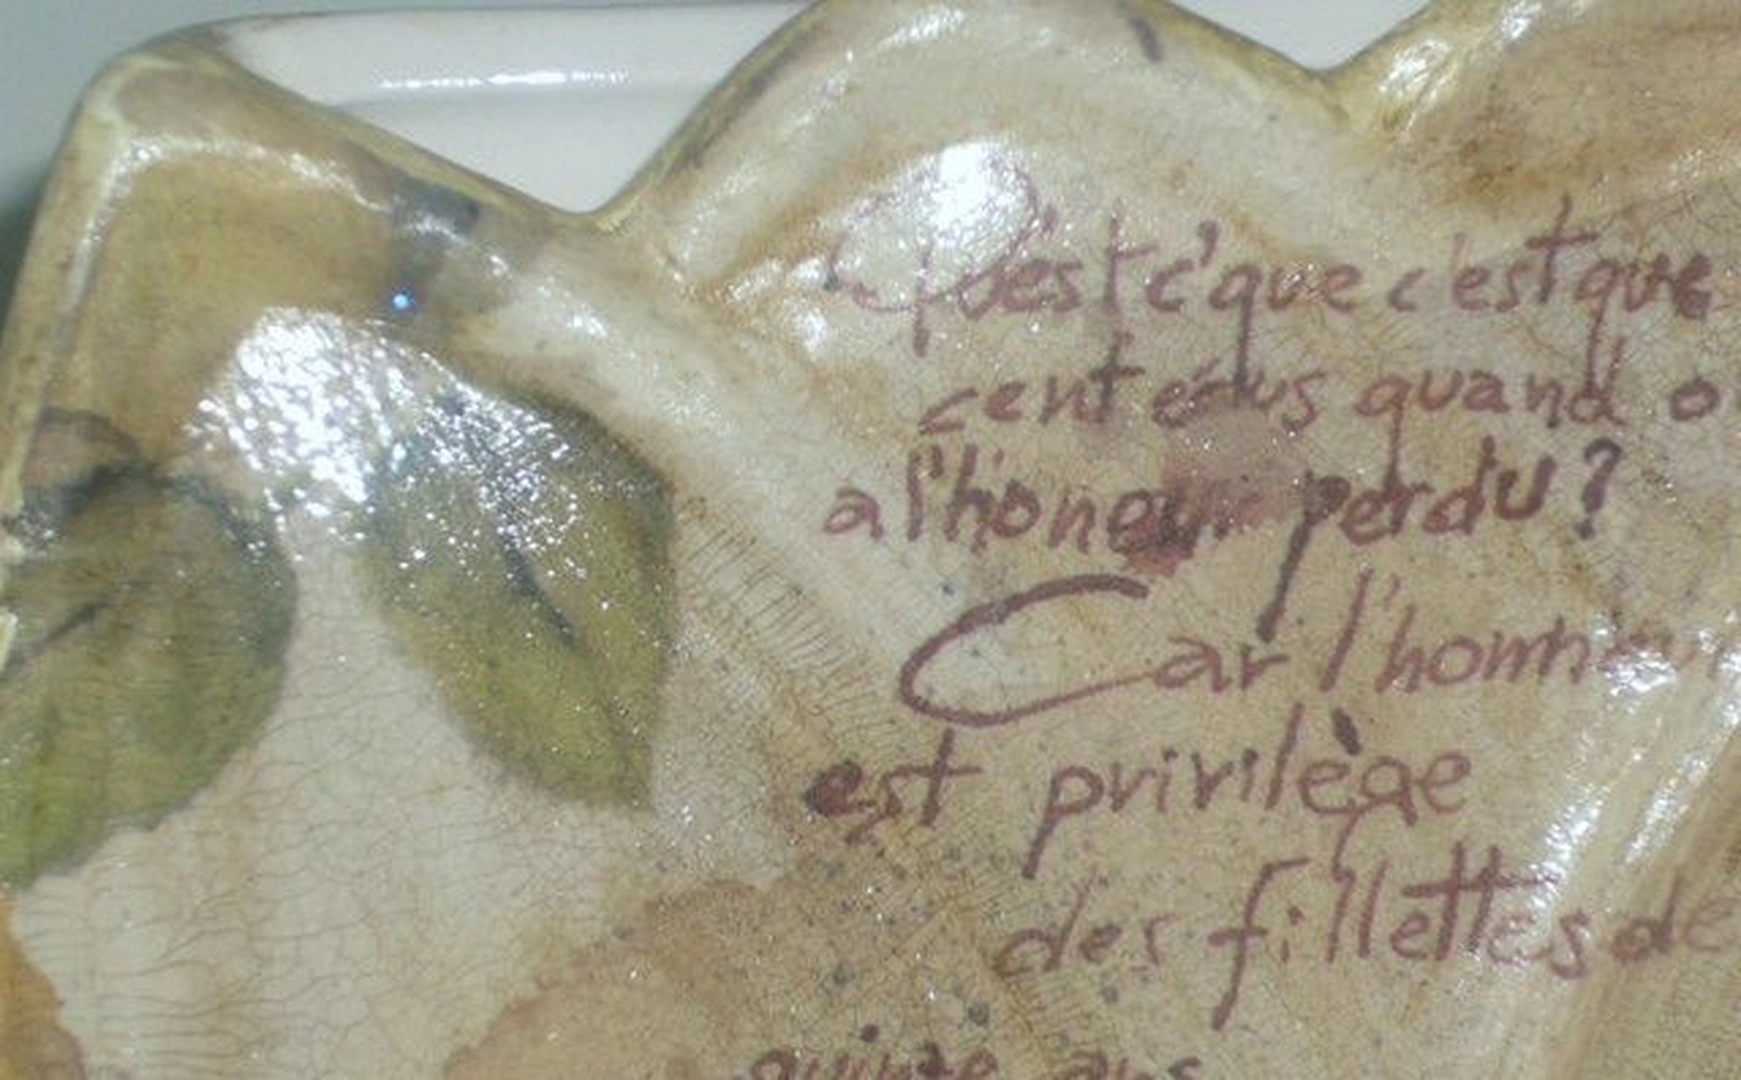 Qu'est c'que c'est que
cent écus quand o
a l'honeur perdu?
Car l'honneur
est privilège
des fillettes de
quinze ans